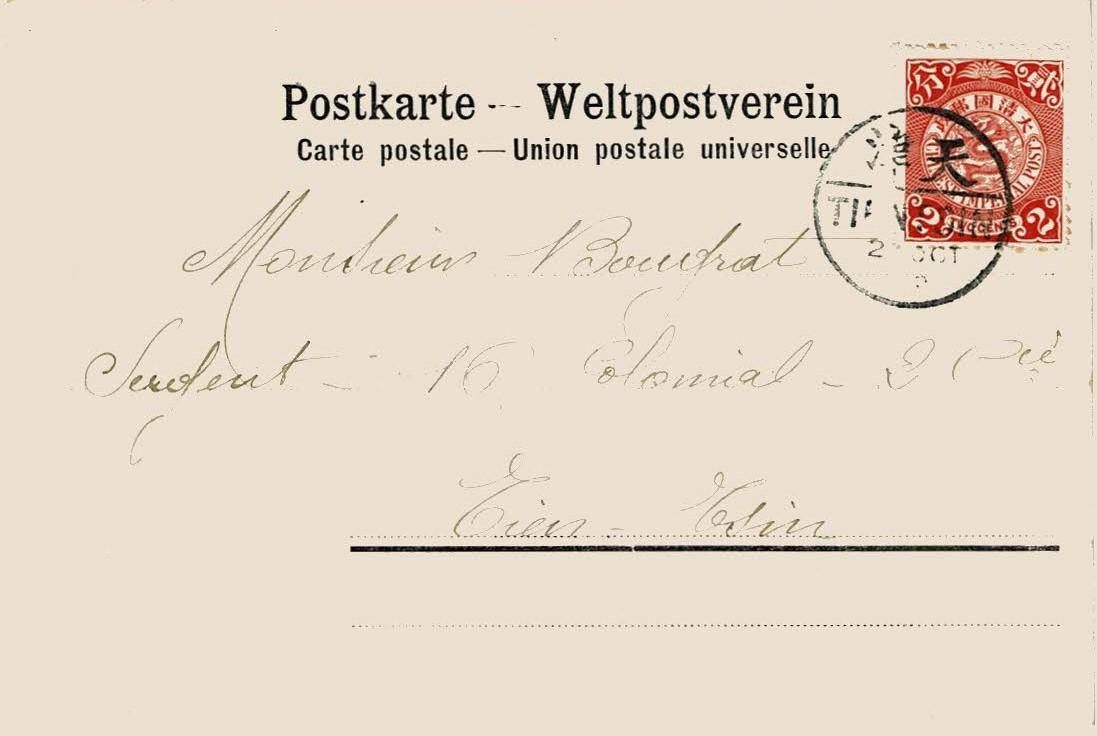 Postkarte -- Weltpostverein
Carte postale — Union postale universelle
分 貳
大清國郵政
CHINESE IMPERIAL POST
2 TWO CENTS 2
天
2 OCT
Monsieur Boufrat
Serdent - 16 Colonial - 2 Cie
Tien-Tsin